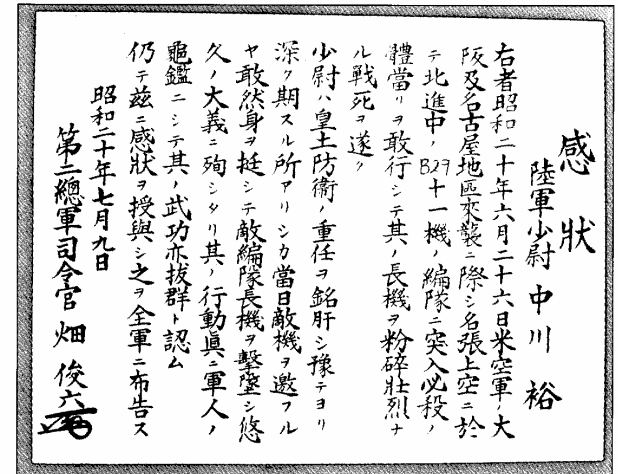 感狀
陸軍少尉 中川 裕
右者昭和二十年六月二十六日米空軍ノ大
阪及名古屋地區來襲ニ際シ名張上空ニ於
テ北進中ノB29十一機ノ編隊ニ突入必殺ノ
體當リヲ敢行シテ其ノ長機ヲ粉碎壯烈ナ
ル戰死ヲ遂ク
少尉ハ皇土防衞ノ重任ヲ銘肝シ豫テヨリ
深ク期スル所アリシカ當日敵機ヲ邀フル
ヤ敢然身ヲ挺シテ敵編隊長機ヲ擊墜シ悠
久ノ大義ニ殉シタリ其ノ行動眞ニ軍人ノ
龜鑑ニシテ其ノ武功亦拔群ト認ム
仍テ茲ニ感狀ヲ授與シ之ヲ全軍ニ布告ス
昭和二十年七月九日
第二總軍司令官 畑 俊六